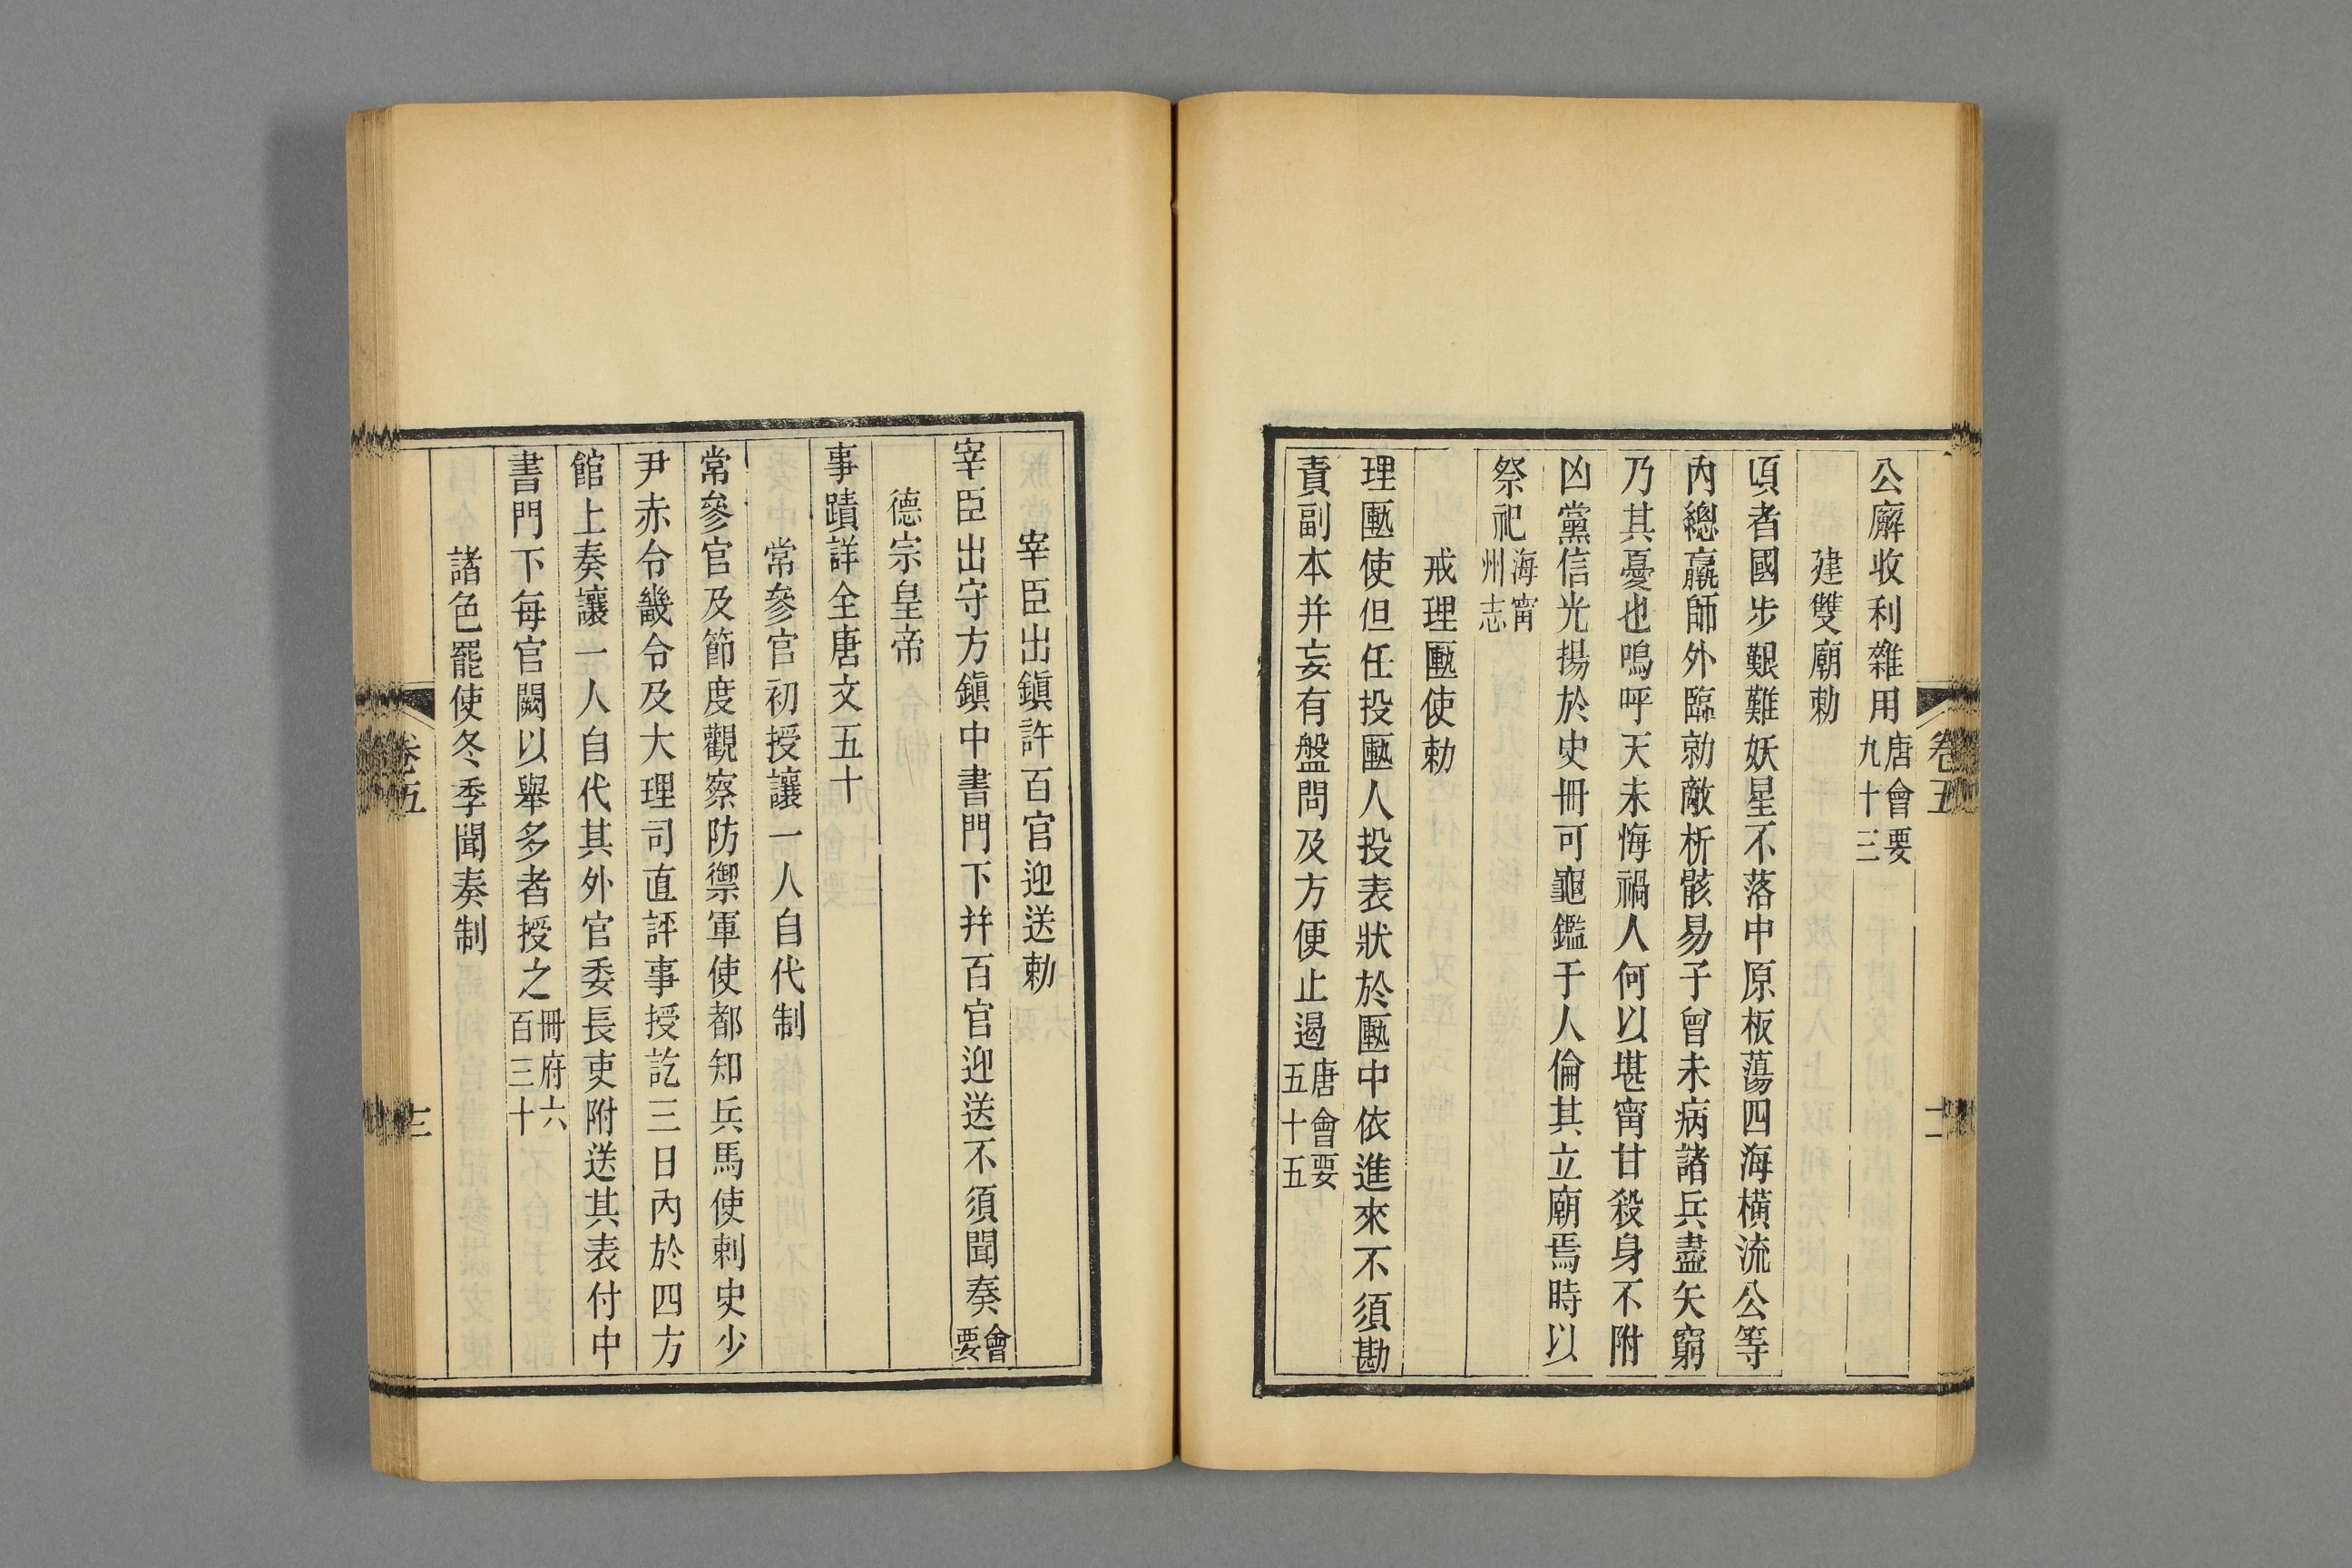 公廨收利雜用唐會要九十三
建雙廟勅
頃者國步艱難妖星不落中原板蕩四海橫流公等
內總羸師外臨勍敵析骸易子曾未病諸兵盡矢窮
乃其憂也嗚呼天未悔禍人何以堪甯甘殺身不附
凶黨信光揚於史冊可龜鑑于人倫其立廟焉時以
祭祀海甯州志
戒理匭使勅
理匭使但任投匭人投表狀於匭中依進來不須勘
責副本并妄有盤問及方便止遏唐會要五十五
卷五
十二
宰臣出鎭許百官迎送勅
宰臣出守方鎭中書門下幷百官迎送不須聞奏會要
德宗皇帝
事蹟詳全唐文五十
常參官初授讓一人自代制
常參官及節度觀察防禦軍使都知兵馬使刺史少
尹赤令畿令及大理司直評事授訖三日內於四方
館上奏讓一人自代其外官委長吏附送其表付中
書門下每官闕以舉多者授之冊府六百三十
諸色罷使冬季聞奏制
卷五